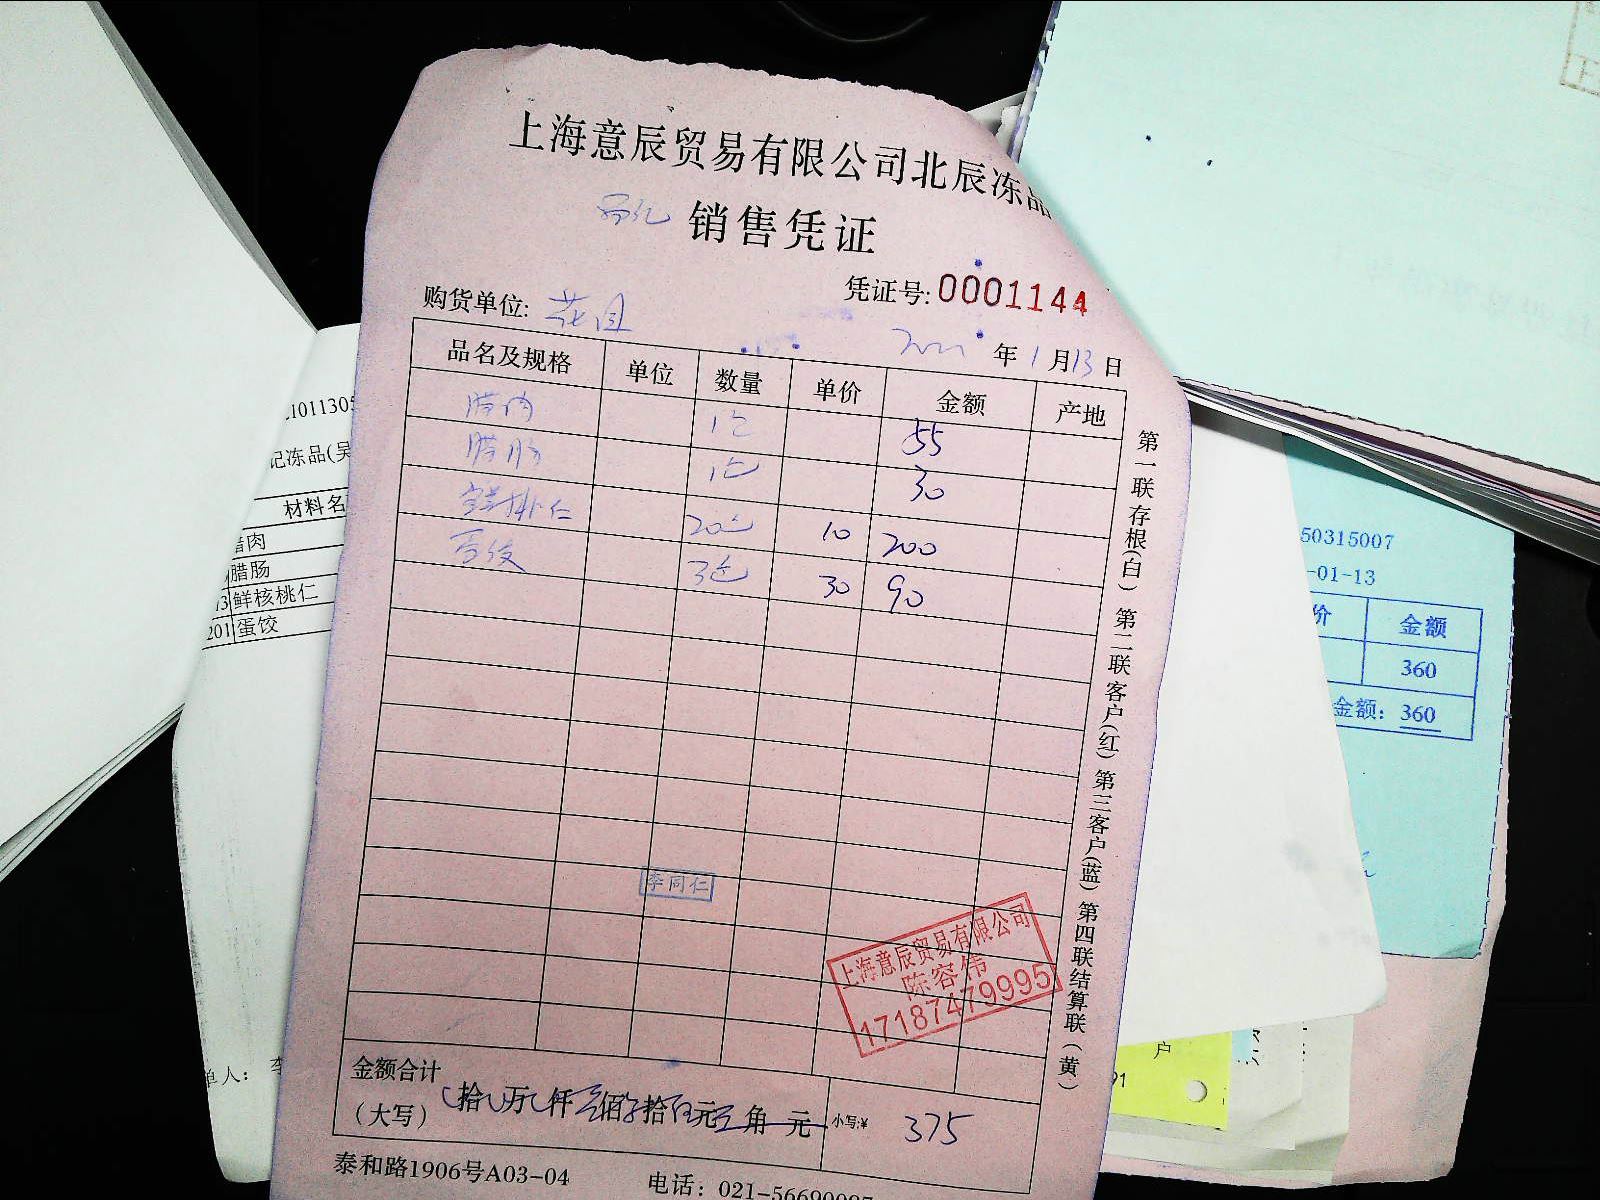 上海意辰贸易有限公司北辰冻品
销售凭证
凭证号: 0001144
购货单位: 花园
年 1 月 13 日
品名及规格 单位 数量 单价 金额 产地
腊肉 1包 55
腊肠 1包 30
鲜桃仁 20包 10 200
蛋饺 3包 30 90
第一联存根(白) 第二联客户(红) 第三客户(蓝) 第四联结算联(黄)
李同仁
上海意辰贸易有限公司
陈容伟
17187479995
金额合计
(大写)
拾 万 仟 佰 拾 元 角 元 小写:¥ 375
泰和路1906号A03-04 电话: 021-5669
记冻品(吴
材料名
腊肉
腊肠
鲜核桃仁
201 蛋饺
单人:
50315007
-01-13
价 金额
360
金额: 360
户
91